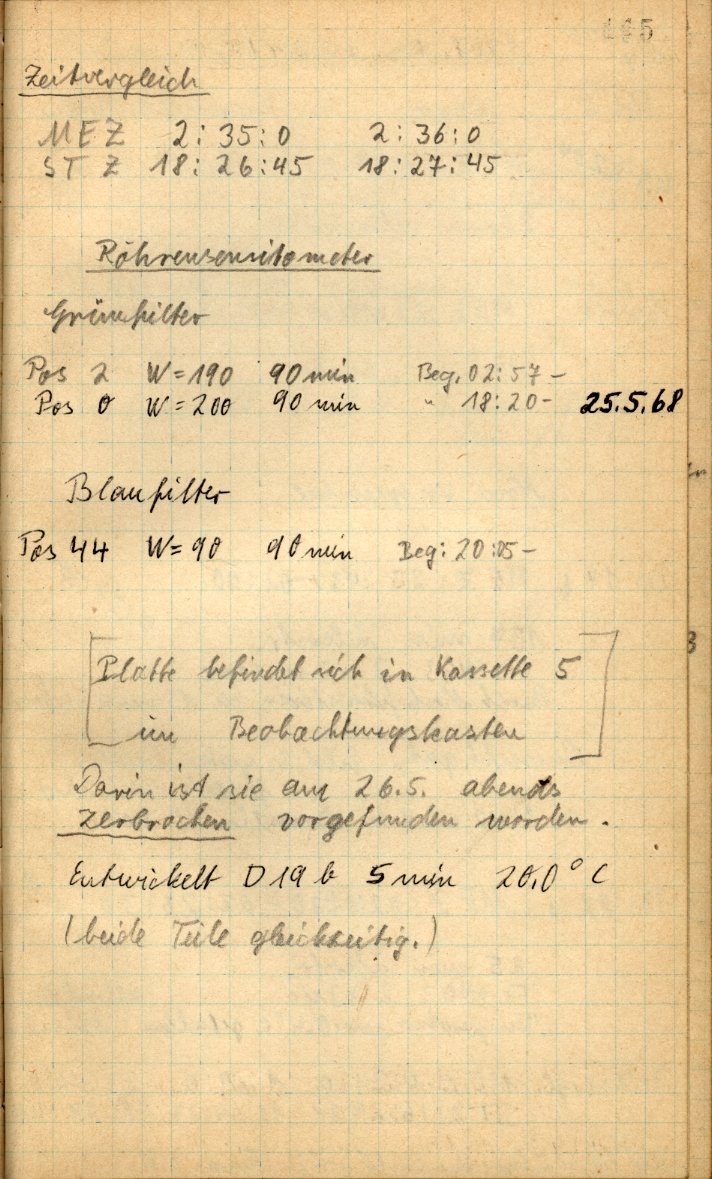 Zeitvergleich
MEZ 2:35:0 2:36:0
STZ 18:26:45 18:27:45
Röhrensensitometer
Grünfilter
Pos 2 W=190 90 min Beg. 02:57-
Pos 0 W=200 90 min " 18:20- 25.5.68
Blaufilter
Pos 44 W=90 90 min Beg: 20:05-
[Platte befindet sich in Kassette 5
im Beobachtungskasten]
Darin ist sie am 26.5. abends
zerbrochen vorgefunden worden.
Entwickelt D19b 5 min 20,0°C
(beide Teile gleichzeitig.)